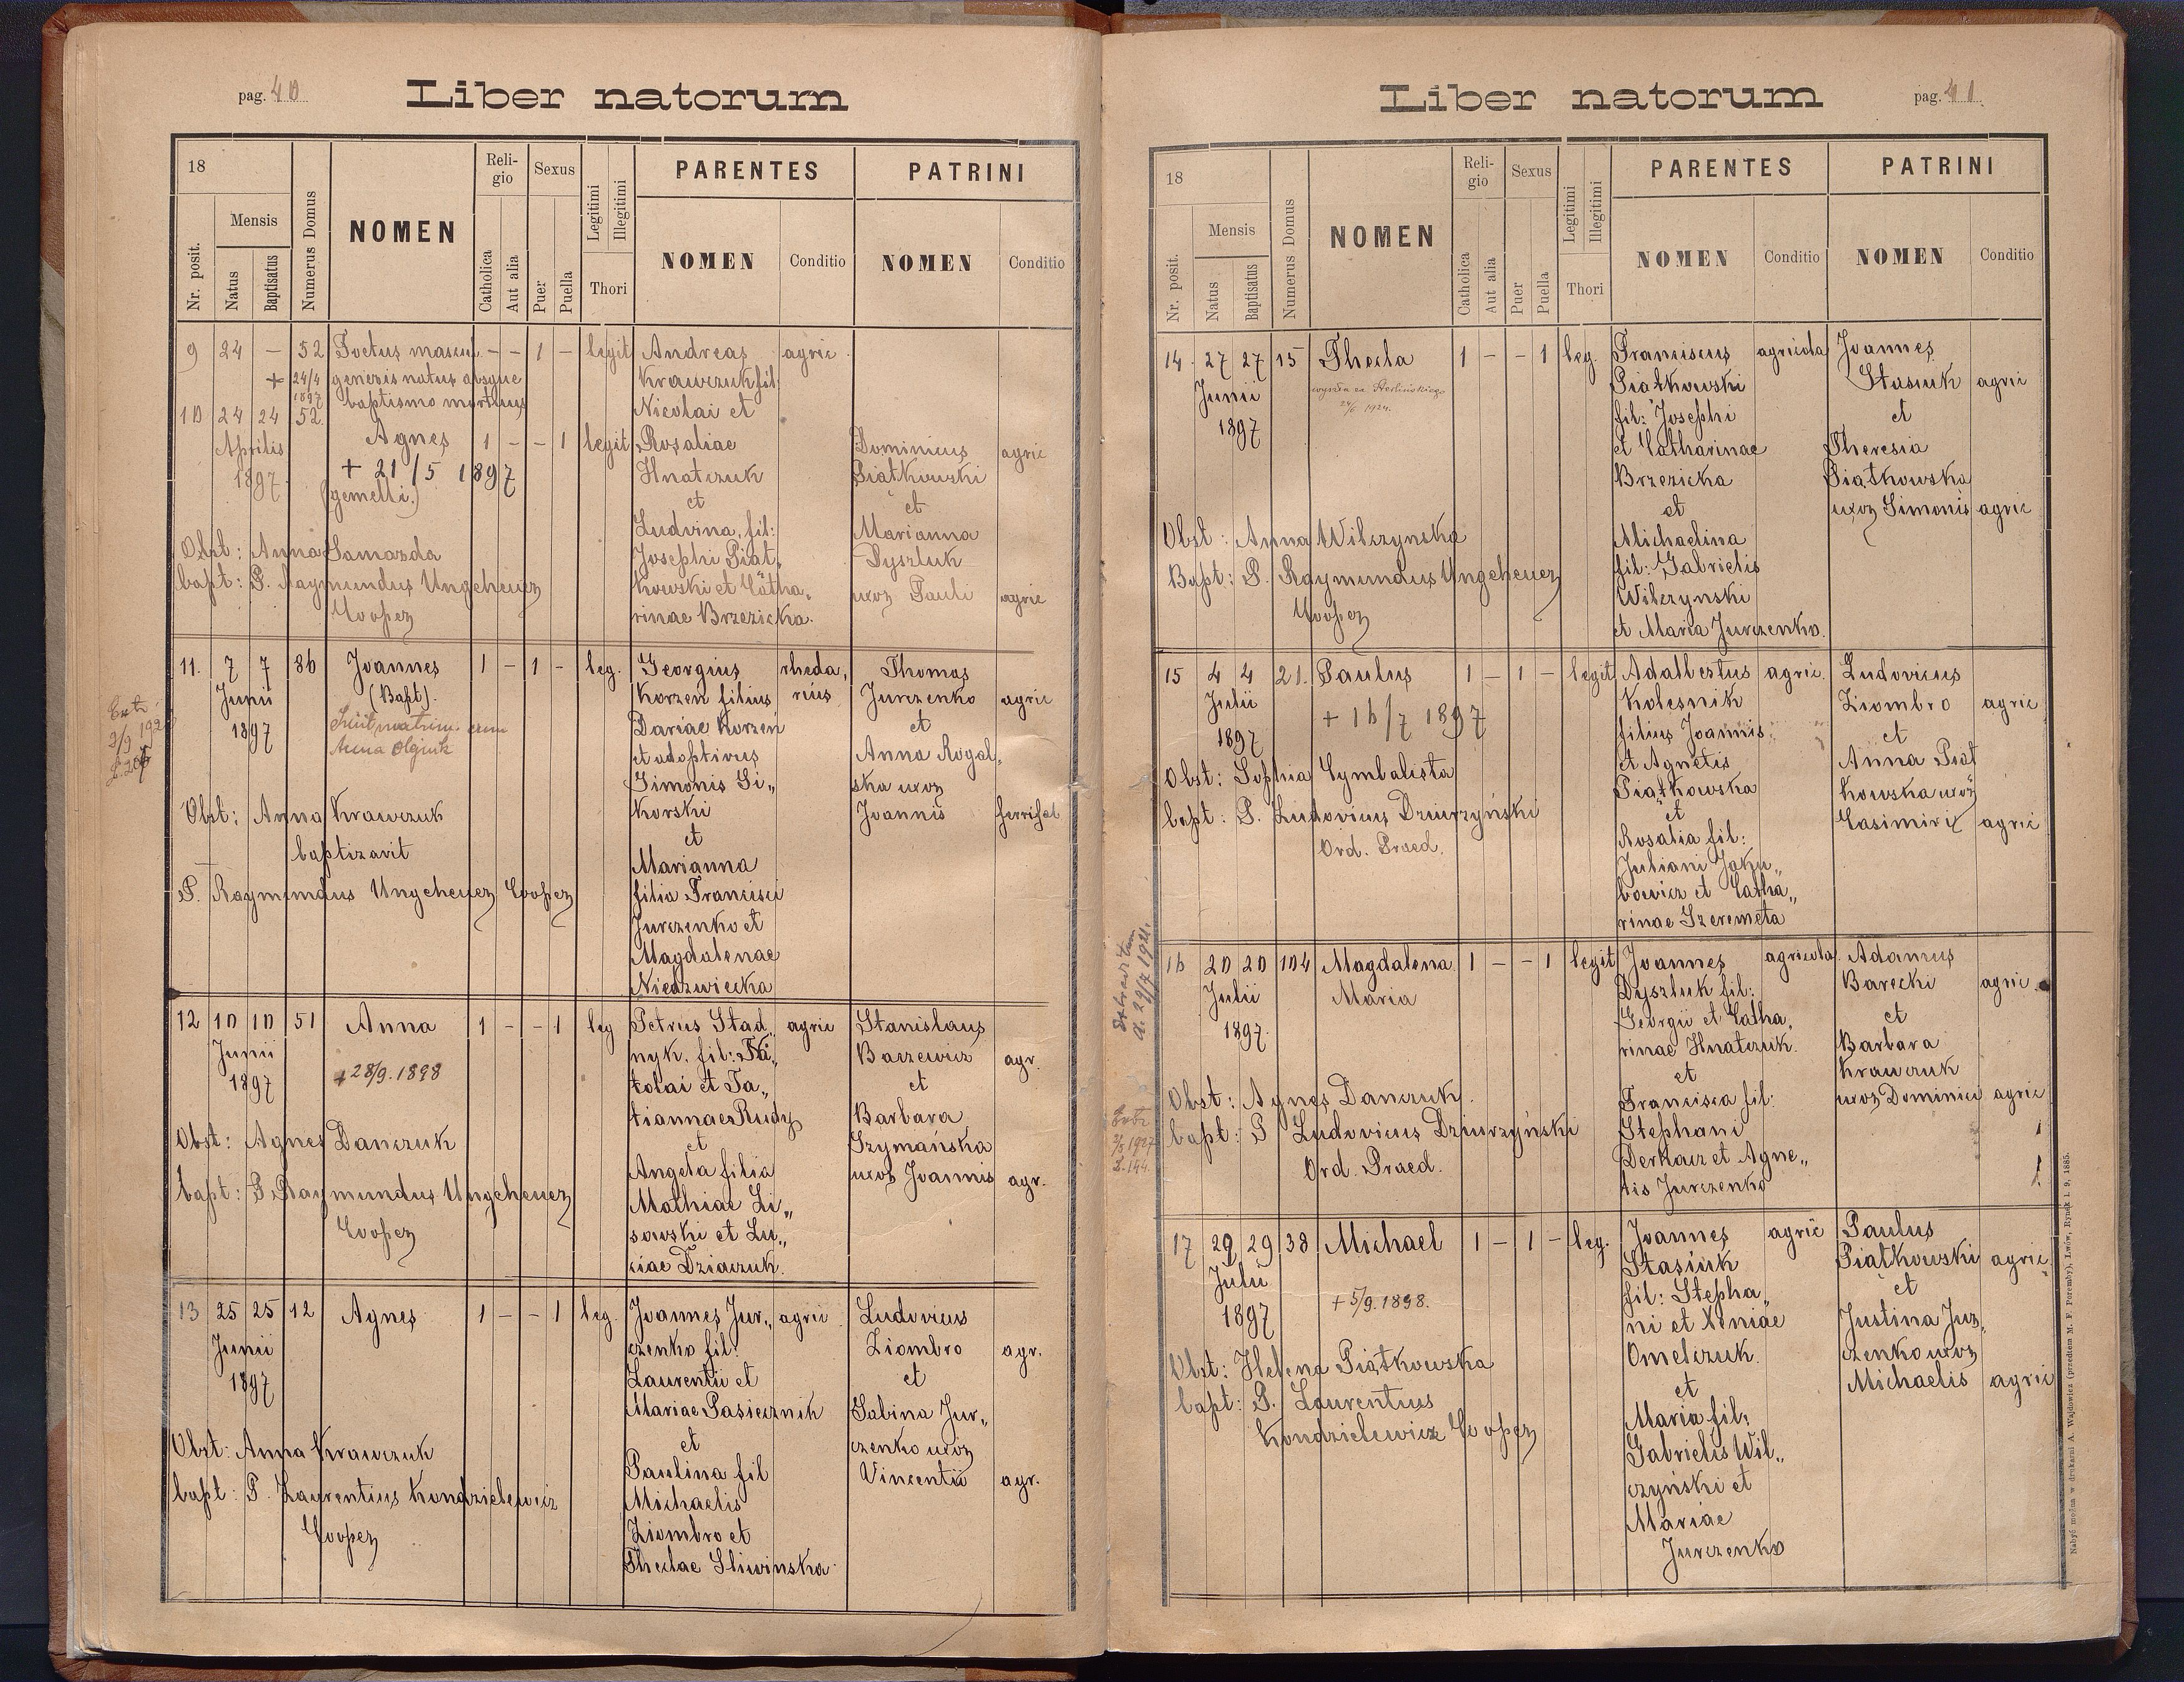 pag. 40
Liber natorum
18
Mensis
Nr. posit.
Natus
Baptisatus
Numerus Domus
NOMEN
Religio
Catholica
Aut alia
Sexus
Puer
Puella
Legitimi
Illegitimi
Thori
PARENTES
NOMEN
Conditio
PATRINI
NOMEN
Conditio
9 24 – 52 Foetus mascul. – – 1 – legit Andreas agric.
+ 24/4 1897 generis natus absque Krawczuk fil:
baptismo mortuus Nicolai et
10 24 24 52 Agnes 1 – – 1 legit Rosaliae Dominicus agric
Aprilis + 21/5 1897 Hnatczuk Piątkowski
1897 (gemelli.) et et
Ludvina, fil: Marianna
Obst: Anna Samazda Josephi Piąt„ Dyszluk
bapt: P. Raymundus Ungeheuer kowski et Catha„ uxor Pauli agric
Cooper rinae Brzezicka.
11. 7 7 86 Joannes 1 – 1 – leg. Georgius rheda„ Thomas
Junii (Bapt). Korzen filius rius Jurczenko agric
1897 Iniit matrim. cum Dariae Korzen et
Anna Olejnik et adoptivus Anna Rogal„
Simonis Si„ ska uxor
Obst: Anna Krawczuk korski Joannis
baptizavit et
Marianna
P. Raymundus Ungeheuer Cooper filia Francisci
Jurczenko et
Magdalenae
Niedzwiecka
12 10 10 51 Anna 1 – – 1 leg Petrus Stad„ agric Stanislaus
Junii nyk. fil: Ni„ Baczewicz agr.
1897 + 28/9. 1898 kolai et Ta„ et
tiannae Rudy Barbara
Obst: Agnes Danczuk et Szymańska
Angela filia uxor Joannis agr.
bapt: P. Raymundus Ungeheuer Mathiae Li„
Cooper sowski et Lu„
ciae Dziaczuk.
13 25 25 12 Agnes 1 – – 1 leg. Joannes Jur„ agric Ludovicus
Junii czenko fil: Ziombro agr.
1897 Laurentii et et
Mariae Pasiecznik Sabina Jur„
Obst: Anna Krawczuk et czenko uxor
bapt: P. Laurentius Kondzielewicz Paulina fil Vincentii agr.
Cooper Michaelis
Ziombro et
Theclae Sliwinska
pag. 41
Liber natorum
18
Mensis
Nr. posit.
Natus
Baptisatus
Numerus Domus
NOMEN
Religio
Catholica
Aut alia
Sexus
Puer
Puella
Legitimi
Illegitimi
Thori
PARENTES
NOMEN
Conditio
PATRINI
NOMEN
Conditio
14. 27 27 15 Thecla 1 – – 1 leg. Franciscus agricola Joannes
Junii Piątkowski Stasiuk agric
1897 1924. fil: Josephi et
et Catharinae Theresia
Brzezicka Piątkowska
et uxor Simonis agric
Obst: Anna Wilczynska Michaelina
Bapt: P. Raymundus Ungeheuer fil: Gabrielis
Cooper Wilczynski
et Maria Jurczenko.
15 4 4 21. Paulus 1 – 1 – legit Adalbertus agric. Ludovicus
Julii + 16/7 1897 Kolesnik Ziombro agric
1897 filius Joannis et
Obst: Sophia Cymbalista et Agnetis Anna Piąt
Piątkowska kowska uxor
bapt: P. Ludovicus Dziurzyński et Casimiri agric
Ord. Praed. Rosalia fil:
Juliani Jaku„
bowicz et Catha„
rinae Szeremeta
Extraditum d. 29/7 1921.
16 20 20 104 Magdalena 1 – – 1 legit Joannes agricola Adamus
Julii Maria Dyszluk fil: Barecki agric.
1897. Georgii et Catha„ et
rinae Hnatczuk. Barbara
et Krawczuk
Obst: Agnes Danczuk. Francisca fil: uxor Dominici agric
bapt: P Ludovicus Dziurzyński Stephani
Ord. Praed. Derkacz et Agne„
tis Jurczenko
17 29 29 38 Michael 1 – 1 – leg. Joannes agric Paulus
Julii Stasiuk Piątkowski agric
1897 + 5/9. 1898. fil: Stepha„ et
ni et Xeniae Justina Jur„
Obst: Helena Piątkowska Omelczuk. czenko uxor
bapt: P. Laurentius et Michaelis agric
Kondzielewicz Cooper Maria fil:
Gabrielis Wil„
czyński et
Mariae
Jurczenko
Nabyć można w drukarni A. Wajdowicz (przedtem M. F. Poremby), Lwów, Rynek l. 9, 1885.